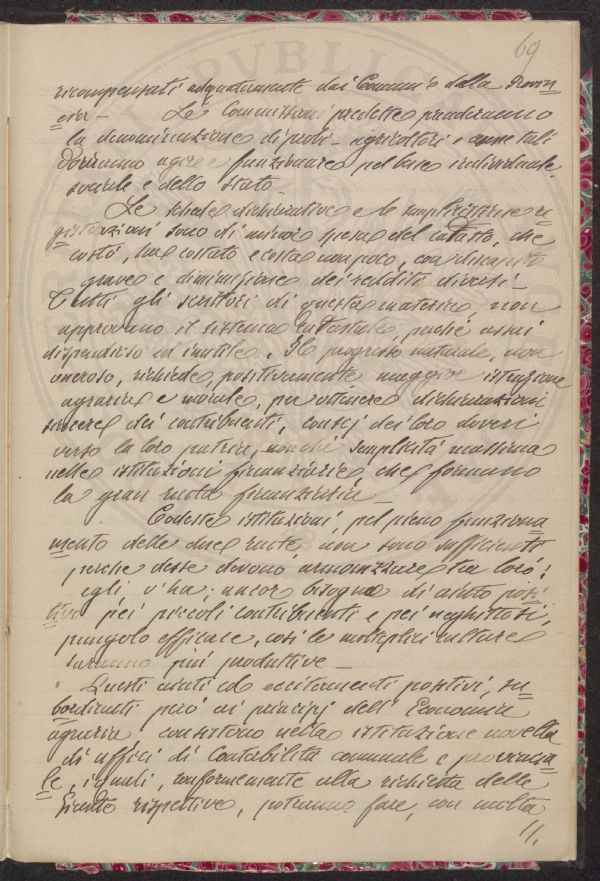 69
ricompensati adguatamente dai Comuni e dalla Provin
cia — Le Commissioni predette prenderanno
la denominazione di probi-agricoltori e come tali
dovranno agire e funzionare pel bene individuale
sociale e dello Stato —
Le schede dichiarative e le semplicissime re
gistrazioni sono di minor spesa del catasto, che
costò, ha costato e costa non poco, con discapito
grave e diminuzione dei redditi diversi —
Tutti gli scrittori di questa materia non
approvano il sistema catastale, perché assai
dispendioso ed inutile. Il progresso naturale, non
oneroso, richiede, positivamente maggiore istruzione
agraria e morale, per ottenere dichiarazioni
sincere dei contribuenti, consci dei loro doveri
verso la loro patria, nonché semplicità massima
nelle istituzioni finanziarie, che formano
la gran ruota finanziaria —
Codeste istituzioni, pel pieno funziona
mento delle due ruote non sono sufficienti
perche desse devono armonizzare tra loro;
egli v'ha, ancor bisogno di aiuto posi
tivo pei piccoli contribuenti e pei neghittosi,
pungolo efficace, così le molteplici culture
saranno più produttive —
Questi aiuti ed eccitamenti positivi, su
bordinati però ai principj dell'Economia
agraria consistono nella istituzione novella
di uffici di Contabilità comunale e provincia
le, i quali, conformemente alla richiesta delle
Giunte rispettive, potranno fare, con molta
//.